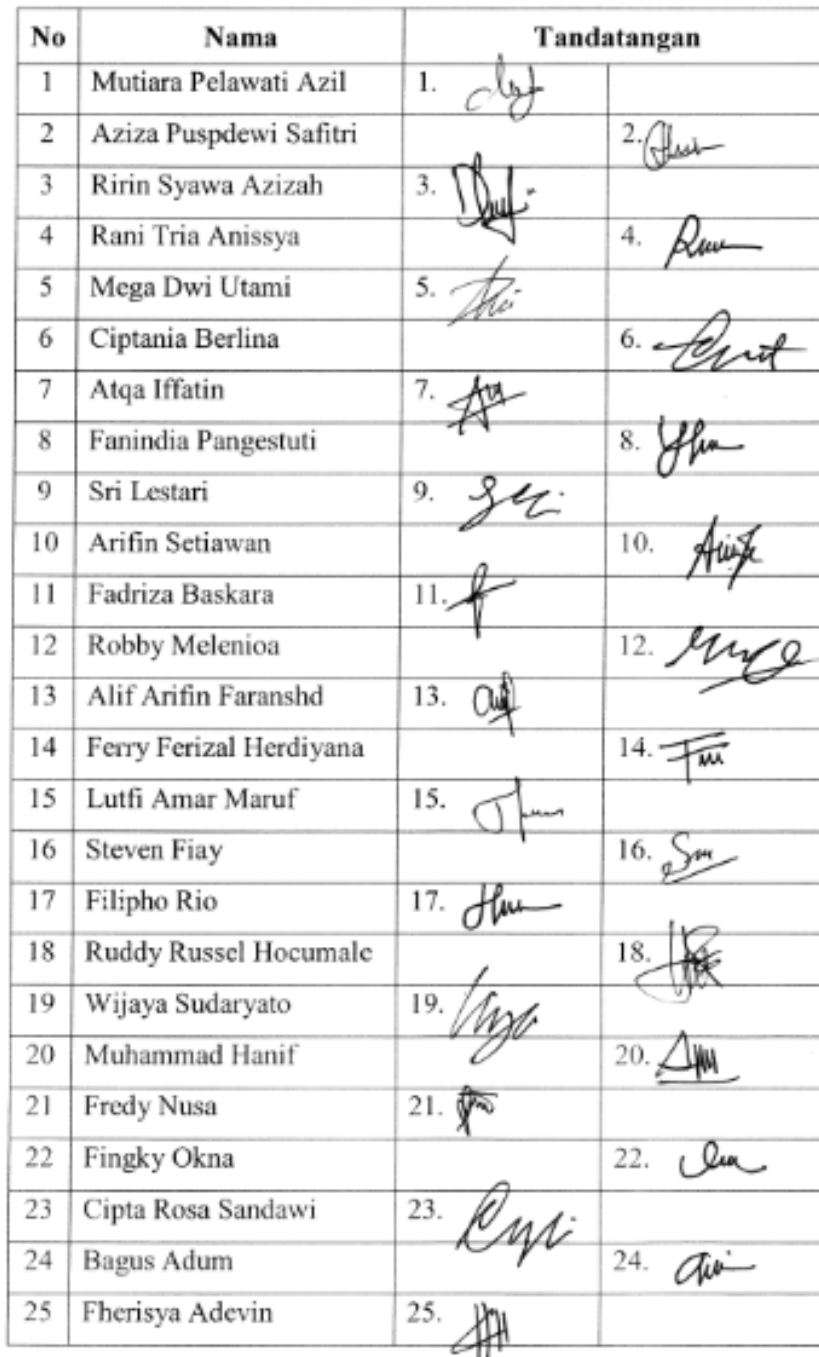 No Nama Tandatangan
1 Mutiara Pelawati Azil 1.
2 Aziza Puspdewi Safitri 2.
3 Ririn Syawa Azizah 3.
4 Rani Tria Anissya 4.
5 Mega Dwi Utami 5.
6 Ciptania Berlina 6.
7 Atqa Iffatin 7.
8 Fanindia Pangestuti 8.
9 Sri Lestari 9.
10 Arifin Setiawan 10.
11 Fadriza Baskara 11.
12 Robby Melenioa 12.
13 Alif Arifin Faranshd 13.
14 Ferry Ferizal Herdiyana 14.
15 Lutfi Amar Maruf 15.
16 Steven Fiay 16.
17 Filipho Rio 17.
18 Ruddy Russel Hocumale 18.
19 Wijaya Sudaryato 19.
20 Muhammad Hanif 20.
21 Fredy Nusa 21.
22 Fingky Okna 22.
23 Cipta Rosa Sandawi 23.
24 Bagus Adum 24.
25 Fherisya Adevin 25.